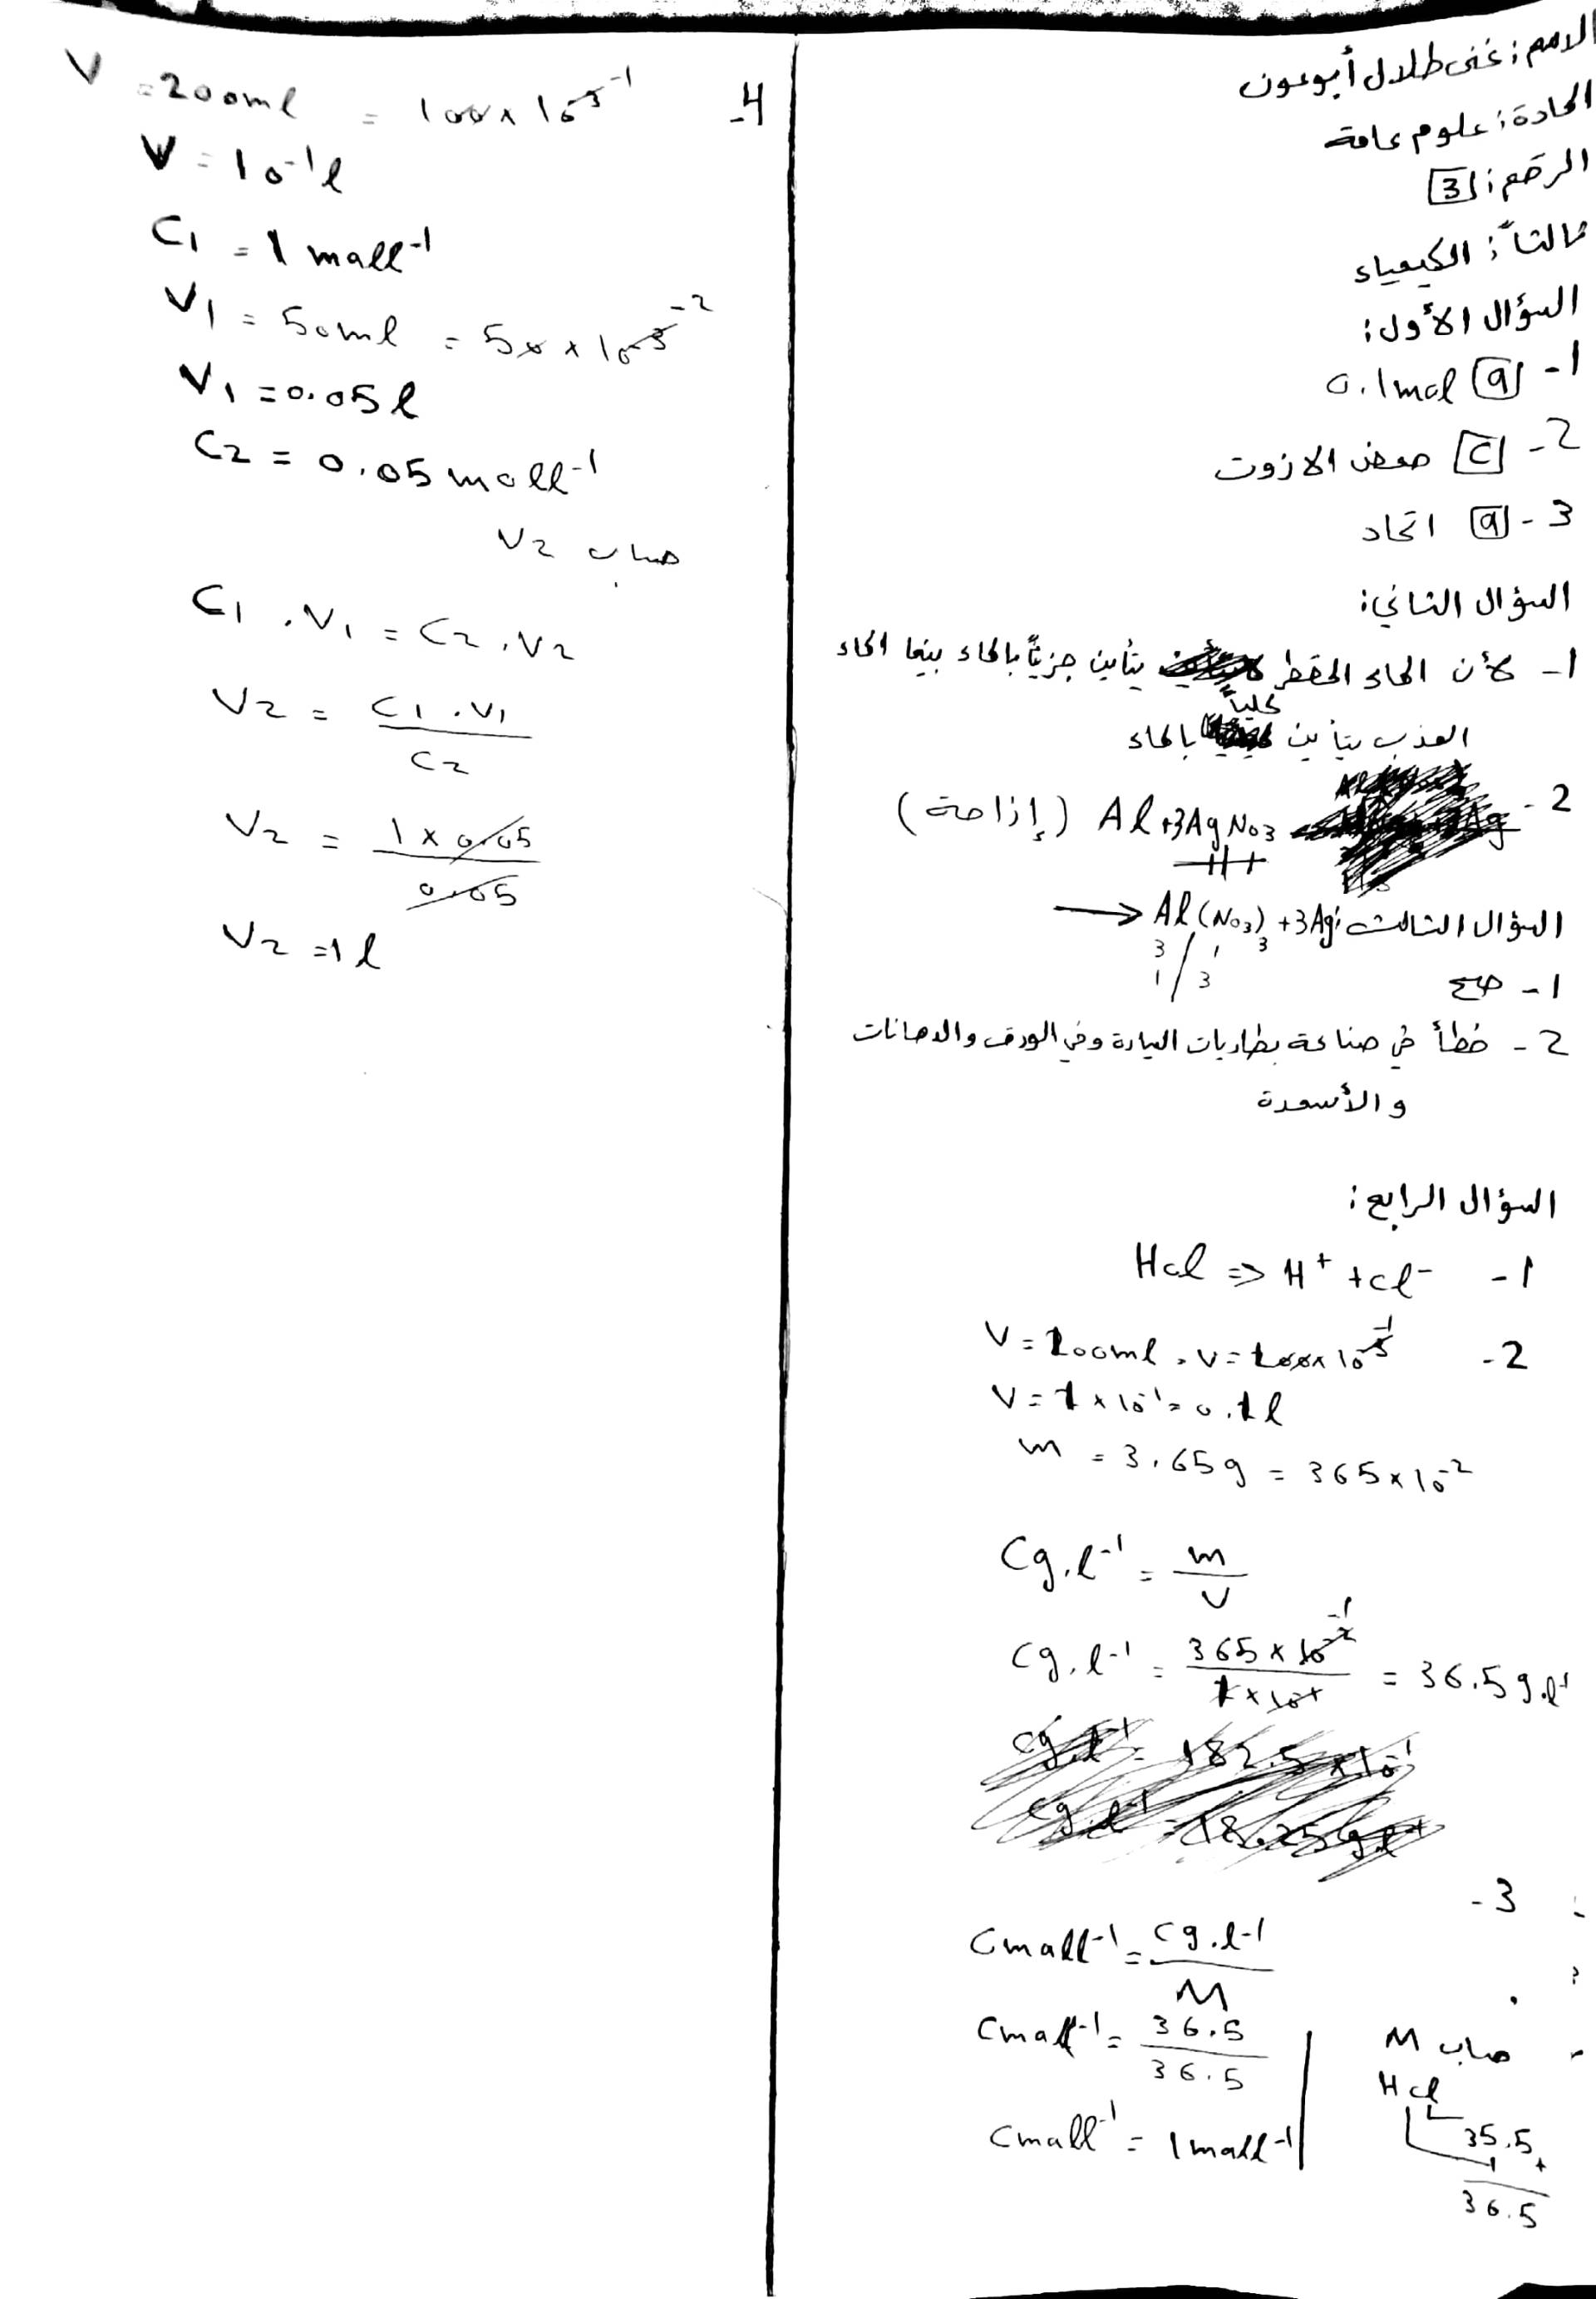 الاسم: غنى طلال أبوعون
المادة: علوم عامة
الرقم: 3
ثالثاً: الكيمياء
السؤال الأول:
1- a 0.1mol
2- c حمض الازوت
3- a اتحاد
السؤال الثاني:
1- لأن الماء المقطر يتأين جزئياً بالماء بينما الماء
العذب يتأين كلياً بالماء
2- Al+3AgNo3 (إزاحة)
→ Al(No3)3 +3Ag
السؤال الثالث:
1- صح
2- خطأ في صناعة بطاريات السيارة وفي الورق والدهانات
و الأسمدة
السؤال الرابع:
1- Hcl => H+ +cl-
2- V = 100ml . V = 100x10-3 -1
V = 1 x 10-1 = 0.1l
m = 3.65g = 365x10-2
Cg.l-1 = m/V
Cg.l-1 = 365x10-2 -1 / 1x10-1 = 36.5 g.l-1
3-
Cmoll-1 = Cg.l-1/M
Cmoll-1 = 36.5/36.5
Cmoll-1 = 1moll-1
حساب M
Hcl
35.5
1 +
36.5
4-
V = 200ml = 100x10-3 -1
V = 10-1l
C1 = 1 moll-1
V1 = 50ml = 50x10-3 -2
V1 = 0.05l
C2 = 0.05moll-1
حساب V2
C1 . V1 = C2 . V2
V2 = C1 . V1/C2
V2 = 1 x 0.05/0.05
V2 = 1l